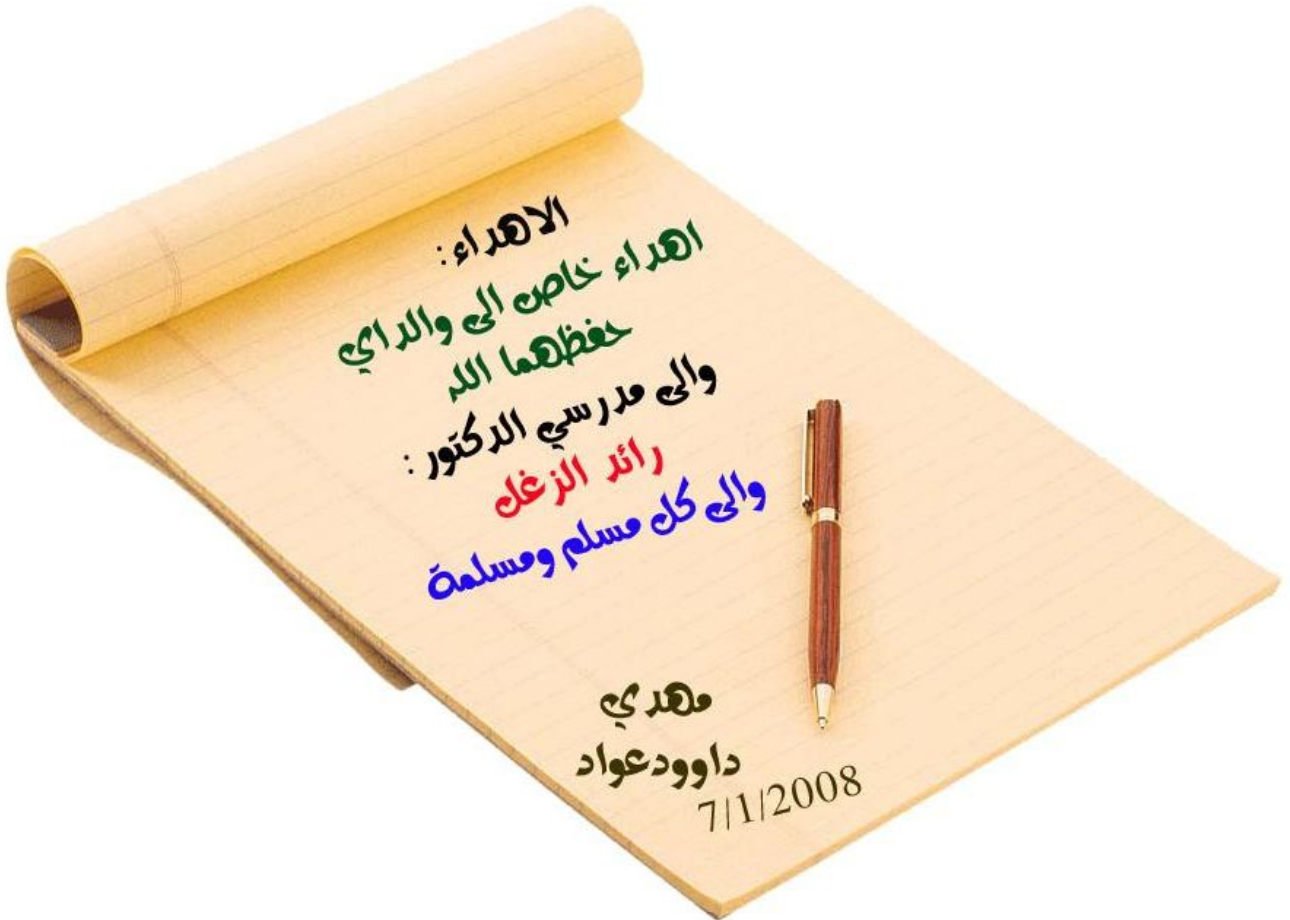 الاهداء:
اهداء خاص الى والداي
حفظهما الله
والى مدرسي الدكتور:
رائد الزغل
والى كل مسلم ومسلمة
مهدي
داوودعواد
7/1/2008